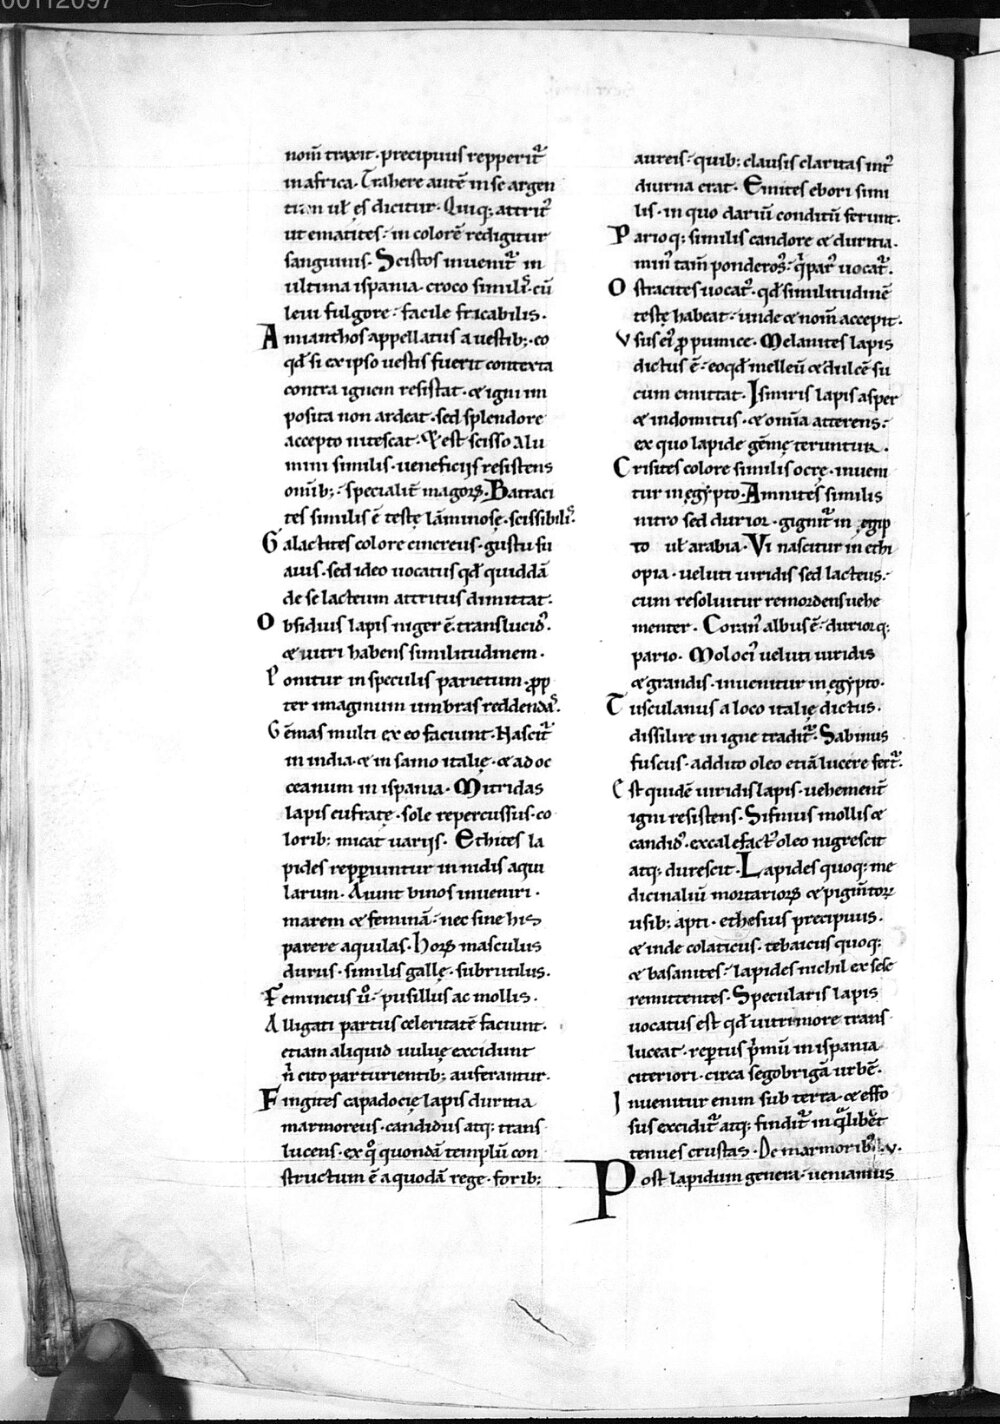 00112097
nom̄ traxit · precipuus repperit᷑
in africa · Trahere autē in se argen
tum ul̄ ęs dicitur · Quiq; attrit᷑
ut ematites · in colorē redigitur
sanguinis · Scistos inuenit᷑ in
ultima ispania · croco simil᷑ · cū
leui fulgore · facile fricabilis ·
Amianthos appellatus a uestib; · eo
qđ si ex ipso uestis fuerit contexta
contra ignem resistat · & igni im
posita non ardeat · sed splendore
accepto nitescat · & est scisso alu
mini similis · ueneficiis resistens
omīb; · specialit᷑ magoꝝ · Batraci
tes similis ē testę lāminosę · scissibil᷑ ·
Galactites colore cinereus · gustu su
auis · sed ideo uocatus qđ quiddā
de se lacteum attritus dimittat ·
Obsidius lapis niger ē · translucid᷒ ·
& uitri habens similitudinem ·
Ponitur in speculis parietum · ꝓp
ter imaginum umbras reddendas ·
Gēmas multi ex eo faciunt · Nascit᷑
in india · & in samo italię · & ad oc
ceanum in ispania · Mitridas
lapis eufratę · sole repercussus · co
lorib; micat uariis · Ethites la
pides repperiuntur in nidis aqui
larum · Aiunt binos inueniri ·
marem & feminā · nec sine his
parere aquilas · Hoꝝ masculus
durus · similis gallę · subrutilus ·
Femineus ū · pusillus ac mollis ·
Alligati partus celeritatē faciunt ·
etiam aliquid uuluę excidunt
n̄ cito parturientib; auferantur ·
Fingites capadocię lapis duritia
marmoreus · candidus atq; trans
lucens · ex qͦ quondā templū con
structum ē a quodā rege · forib;
aureis · quib; clausis claritas int᷑
diurna erat · Emites ebori simi
lis · in quo dariū conditū ferunt ·
Parioq; similis candore & duritia ·
min᷒ tam̄ ponderos᷒ · q̄ par᷒ uocat᷑ ·
Ostracites uocat᷑ · qđ similitudinē
testę habeat · unde & nom̄ accepit ·
Vsus ei᷒ ꝓ pumice · Melanites lapis
dictus ē · eo qđ melleū & dulcē su
cum emittat · Ismiris lapis asper
& indomitus · & omīa atterens ·
ex quo lapide gēmę teruntur ·
Crisites colore similis ocrę · inueni
tur in ęgypto · Amnites similis
nitro sed durior · gignit᷑ in ęgip
to ul̄ arabia · Vi nascitur in ethi
opia · ueluti uiridis sed lacteus ·
cum resoluitur remordens uehe
menter · Coran᷒ albus ē · duriorq;
pario · Moloci᷒ ueluti uiridis
& grandis · inuenitur in ęgypto ·
Tusculanus a loco italię dictus ·
dissilire in igne tradit᷑ · Sabinus
fuscus · addito oleo etiā lucere fert᷑ ·
Est quidē uiridis lapis · uehement᷑
igni resistens · Sifnius mollis &
candid᷒ · excalefact᷒ oleo nigrescit
atq; durescit · Lapides quoq; me
dicinaliū mortarioꝝ & pigm̄toꝝ
usib; apti · ethesius precipuus ·
& inde colaticus · tebaicus quoq;
& basanites · lapides nichil ex sese
remittentes · Specularis lapis
uocatus est qđ uitri more trans
luceat · reptus p̄mū in ispania
citeriori · circa segobrigā urbē ·
Inuenitur enim sub terra · & effo
sus excidit᷑ atq; findit᷑ in q̄libet
tenues crustas · De marmorib; · v ·
Post lapidum genera · ueniamus